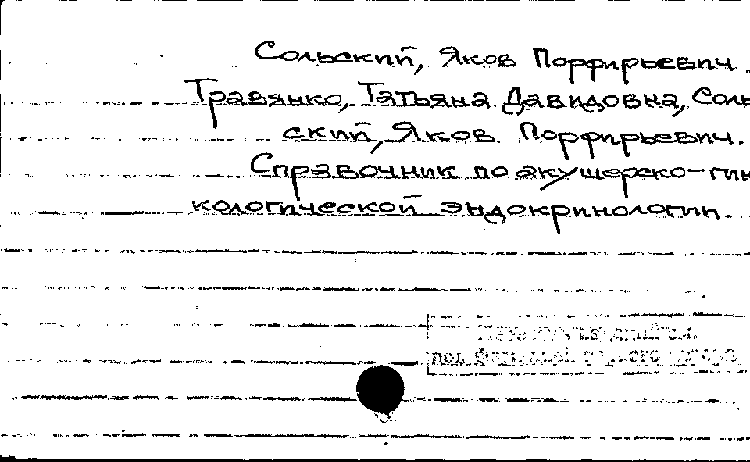 Сольский, Яков Порфирьевич.
Травянко, Татьяна Давидовна, Соль
ский, Яков Порфирьевич.
Справочник по акушерско-гин
кологической эндокринологии.